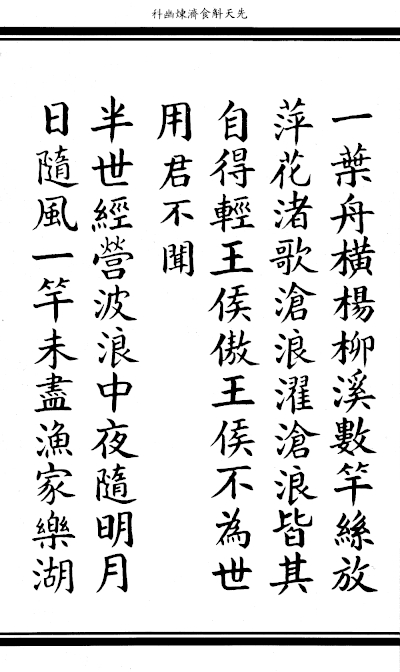 先天斛食濟煉幽科
一葉舟橫楊柳溪數竿絲放
萍花渚歌滄浪濯滄浪皆其
自得輕王侯傲王侯不為世
用君不聞
半世經營波浪中夜隨明月
日隨風一竿未盡漁家樂湖